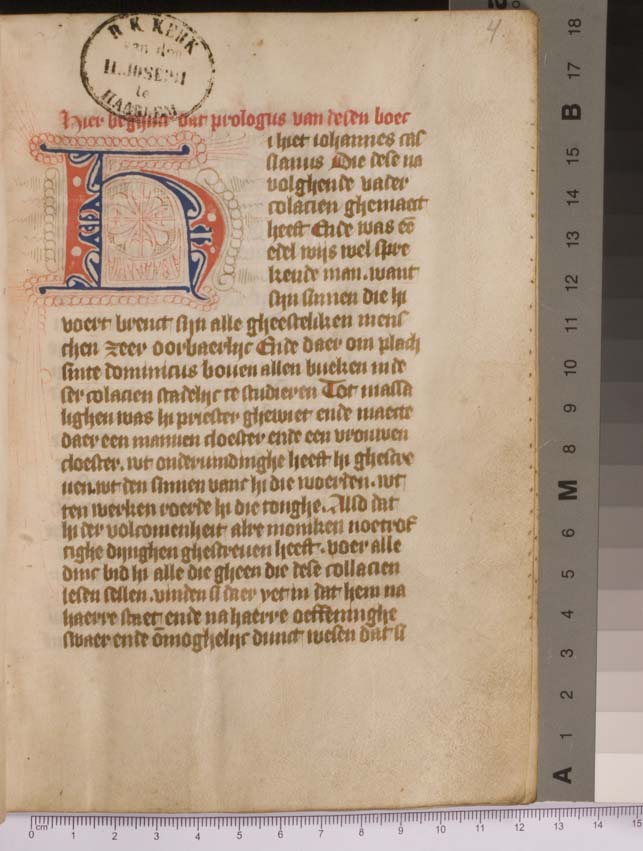 4
R K KERK
van den
H. JOSEPH
te
HAARLEM
Hier beghint dat prologus van desen boec
H
i hiet iohannes cas
sianus Die dese na
volghende vader
colacien ghemaect
heeft Ende was eē
edel wijs wel spre
kende man. want
sijn sinnen die hi
voert brenct sijn alle gheesteliken mens
chen zeer oorbaerlijc Ende daer om plach
sinte dominicus bouen allen bueken in de
ser colacien stadelijc te studieren Tot massi
lighen was hi priester ghewiet ende maecte
daer een mannen cloester ende een vrouwen
cloester. wt onderuindinghe heeft hi ghescre
uen. wt den sinnen vant hi die woerden. wt
ten werken roerde hi die tonghe. Also dat
hi der volcomenheit alre moniken noetrof
tighe dinghen ghescreuen heeft. voer alle
dinc bid hi alle die gheen die dese collacien
lesen sellen. vinden si daer yet in dat hem na
haerre staet ende na haerre oeffeninghe
swaer ende ōmoghelijc dunct wesen dat si